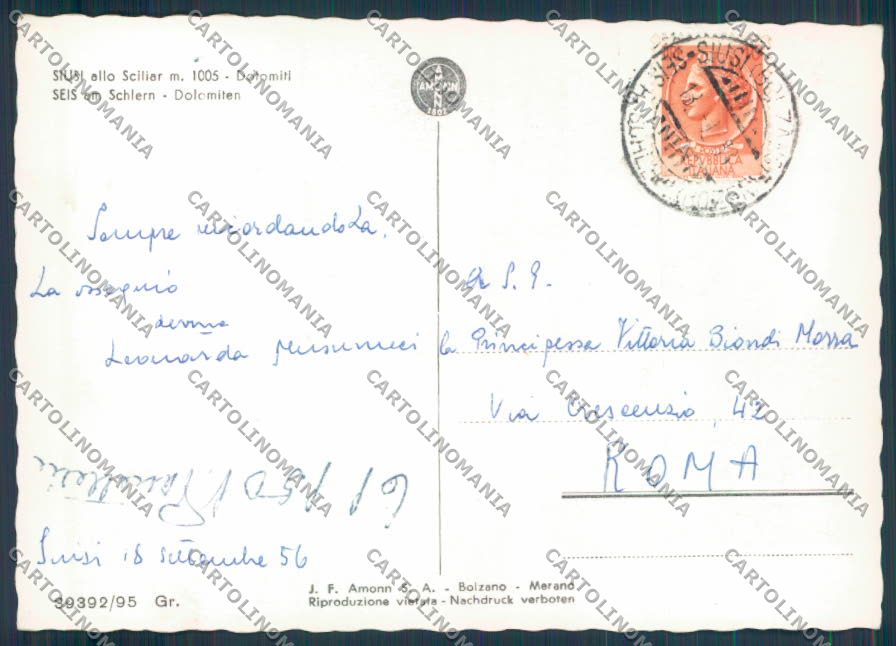 SIUSI allo Sciliar m. 1005 - Dolomiti
SEIS am Schlern - Dolomiten
AMONN
1802
SIUSI
POSTE
REPVBBLICA
ITALIANA
Sempre ricordandola.
La ossequio
devma
Leonarda Musumeci
A S. E.
la Principessa Vittoria Biondi Morra
Via Crescenzio, 42
ROMA
Siusi 18 settembre 56
39392/95 Gr.
J. F. Amonn S. A. - Bolzano - Merano
Riproduzione vietata - Nachdruck verboten
CARTOLINOMANIA